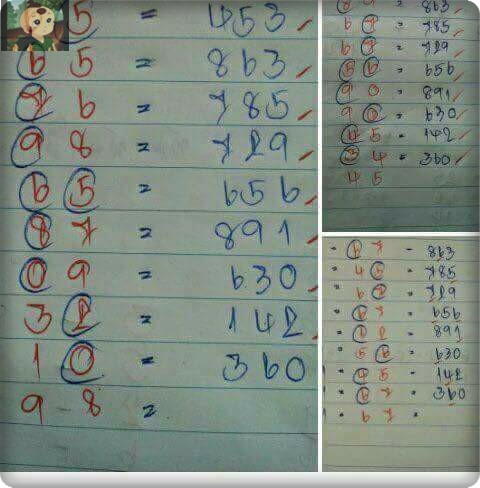 5 = 453
6 5 = 863
7 6 = 785
9 8 = 729
6 5 = 656
8 7 = 891
0 9 = 630
3 2 = 142
1 0 = 360
9 - 8 =
= 863
6 7 = 785
6 7 = 729
5 6 = 656
9 0 = 891
9 0 = 630
4 5 = 142
3 4 = 360
4 5
6 7 - 863
4 5 = 785
6 2 = 729
6 7 = 656
= 891
5 6 = 630
4 5 = 142
6 7 = 360
6 7 =